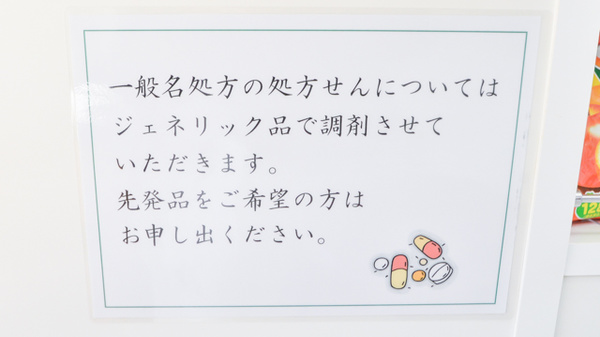 一般名処方の処方せんについては
ジェネリック品で調剤させて
いただきます。
先発品をご希望の方は
お申し出ください。